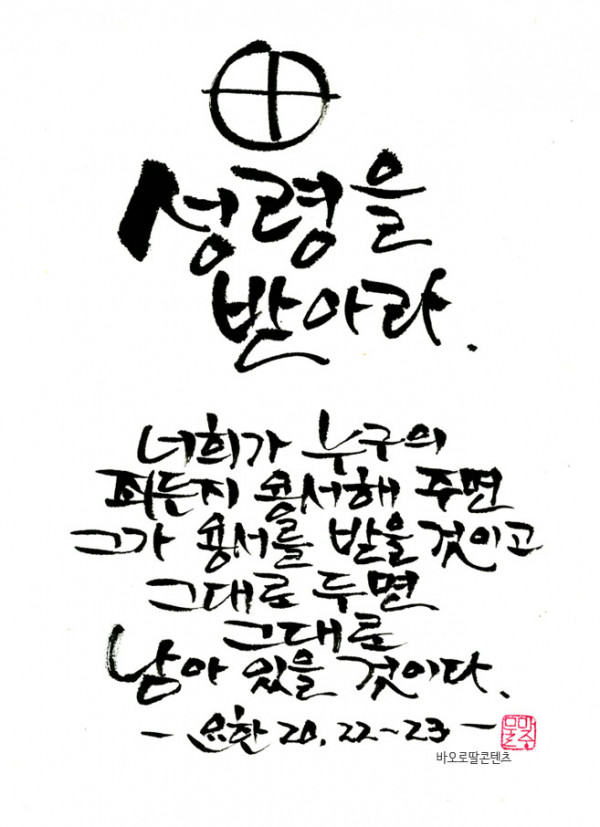 성령을
받아라.
너희가 누구의
죄든지 용서해 주면
그가 용서를 받을 것이고
그대로 두면
그대로
남아 있을 것이다.
- 요한 20, 22~23 -
바오로딸콘텐츠